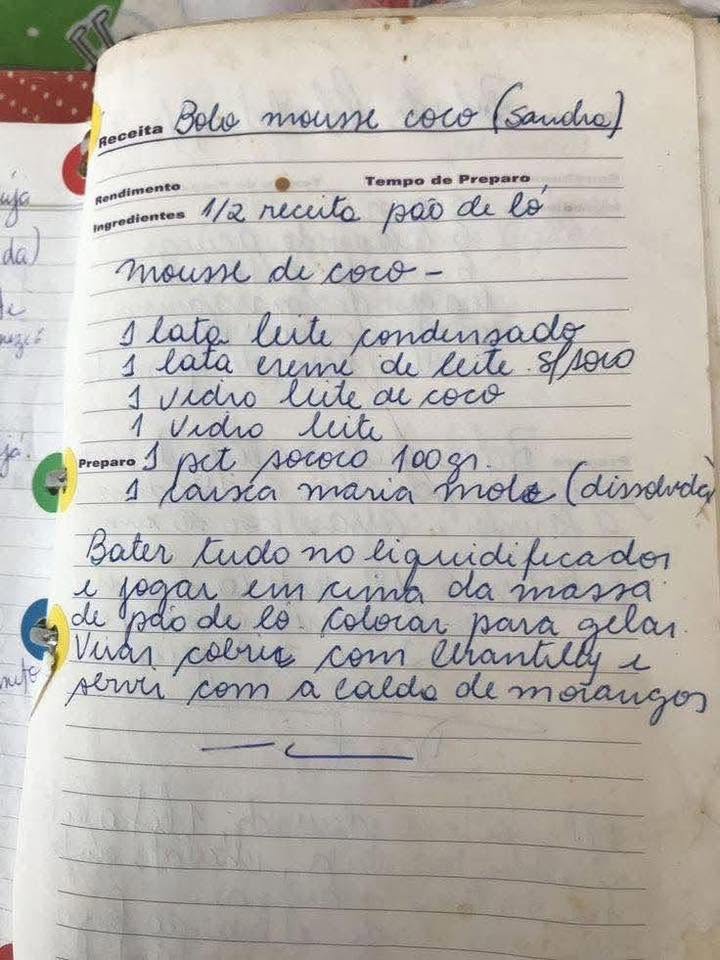 Receita Bolo mousse coco (Sandra)
Rendimento Tempo de Preparo
Ingredientes 1/2 receita pão de ló
mousse de coco -
1 lata leite condensado
1 lata creme de leite s/soro
1 vidro leite de coco
1 vidro leite
Preparo 1 pct sococo 100gr.
1 caixa maria mole (dissolvida)
Bater tudo no liquidificador
e jogar em cima da massa
de pão de ló. Colocar para gelar.
Virar cobrir com Chantilly e
servir com a calda de morangos